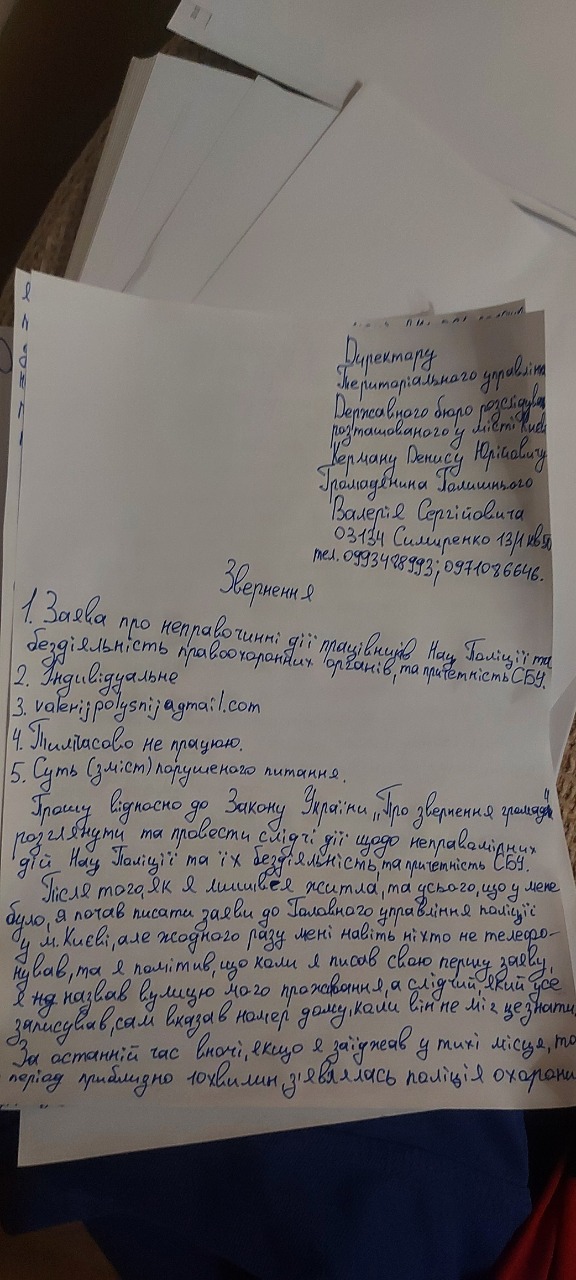 Директору
Територіального управлін
Державного бюро розслідува
розташованого у місті Києв
Керману Денису Юрійовичу
Громадянина Полишнього
Валерія Сергійовича
03134 Симиренко 13/1 кв 50
тел. 0993488993; 0971086646.
Звернення
1. Заява про неправочинні дії працівників Нац Поліції та
бездіяльність правоохоронних органів, та причетність СБУ.
2. Індивідуальне
3. valerijpolysnij@gmail.com
4. Тимчасово не працюю.
5. Суть (зміст) порушеного питання.
Прошу відносно до Закону України „Про звернення громадян“
розглянути та провести слідчі дії щодо неправомірних
дій Нац Поліції та їх бездіяльність, та причетність СБУ.
Після того, як я лишився житла, та усього, що у мене
було, я почав писати заяви до Головного управління поліції
у м. Києві, але жодного разу мені навіть ніхто не телефо-
нував, та я помітив, що коли я писав свою першу заяву,
я не назвав вулицю мого проживання, а слідчий який усе
записував, сам вказав номер дому, коли він не міг це знати
За останній час вночі, якщо я заїджав у тихі місця, то
період приблизно 10 хвилин, з'являлась поліція охорони